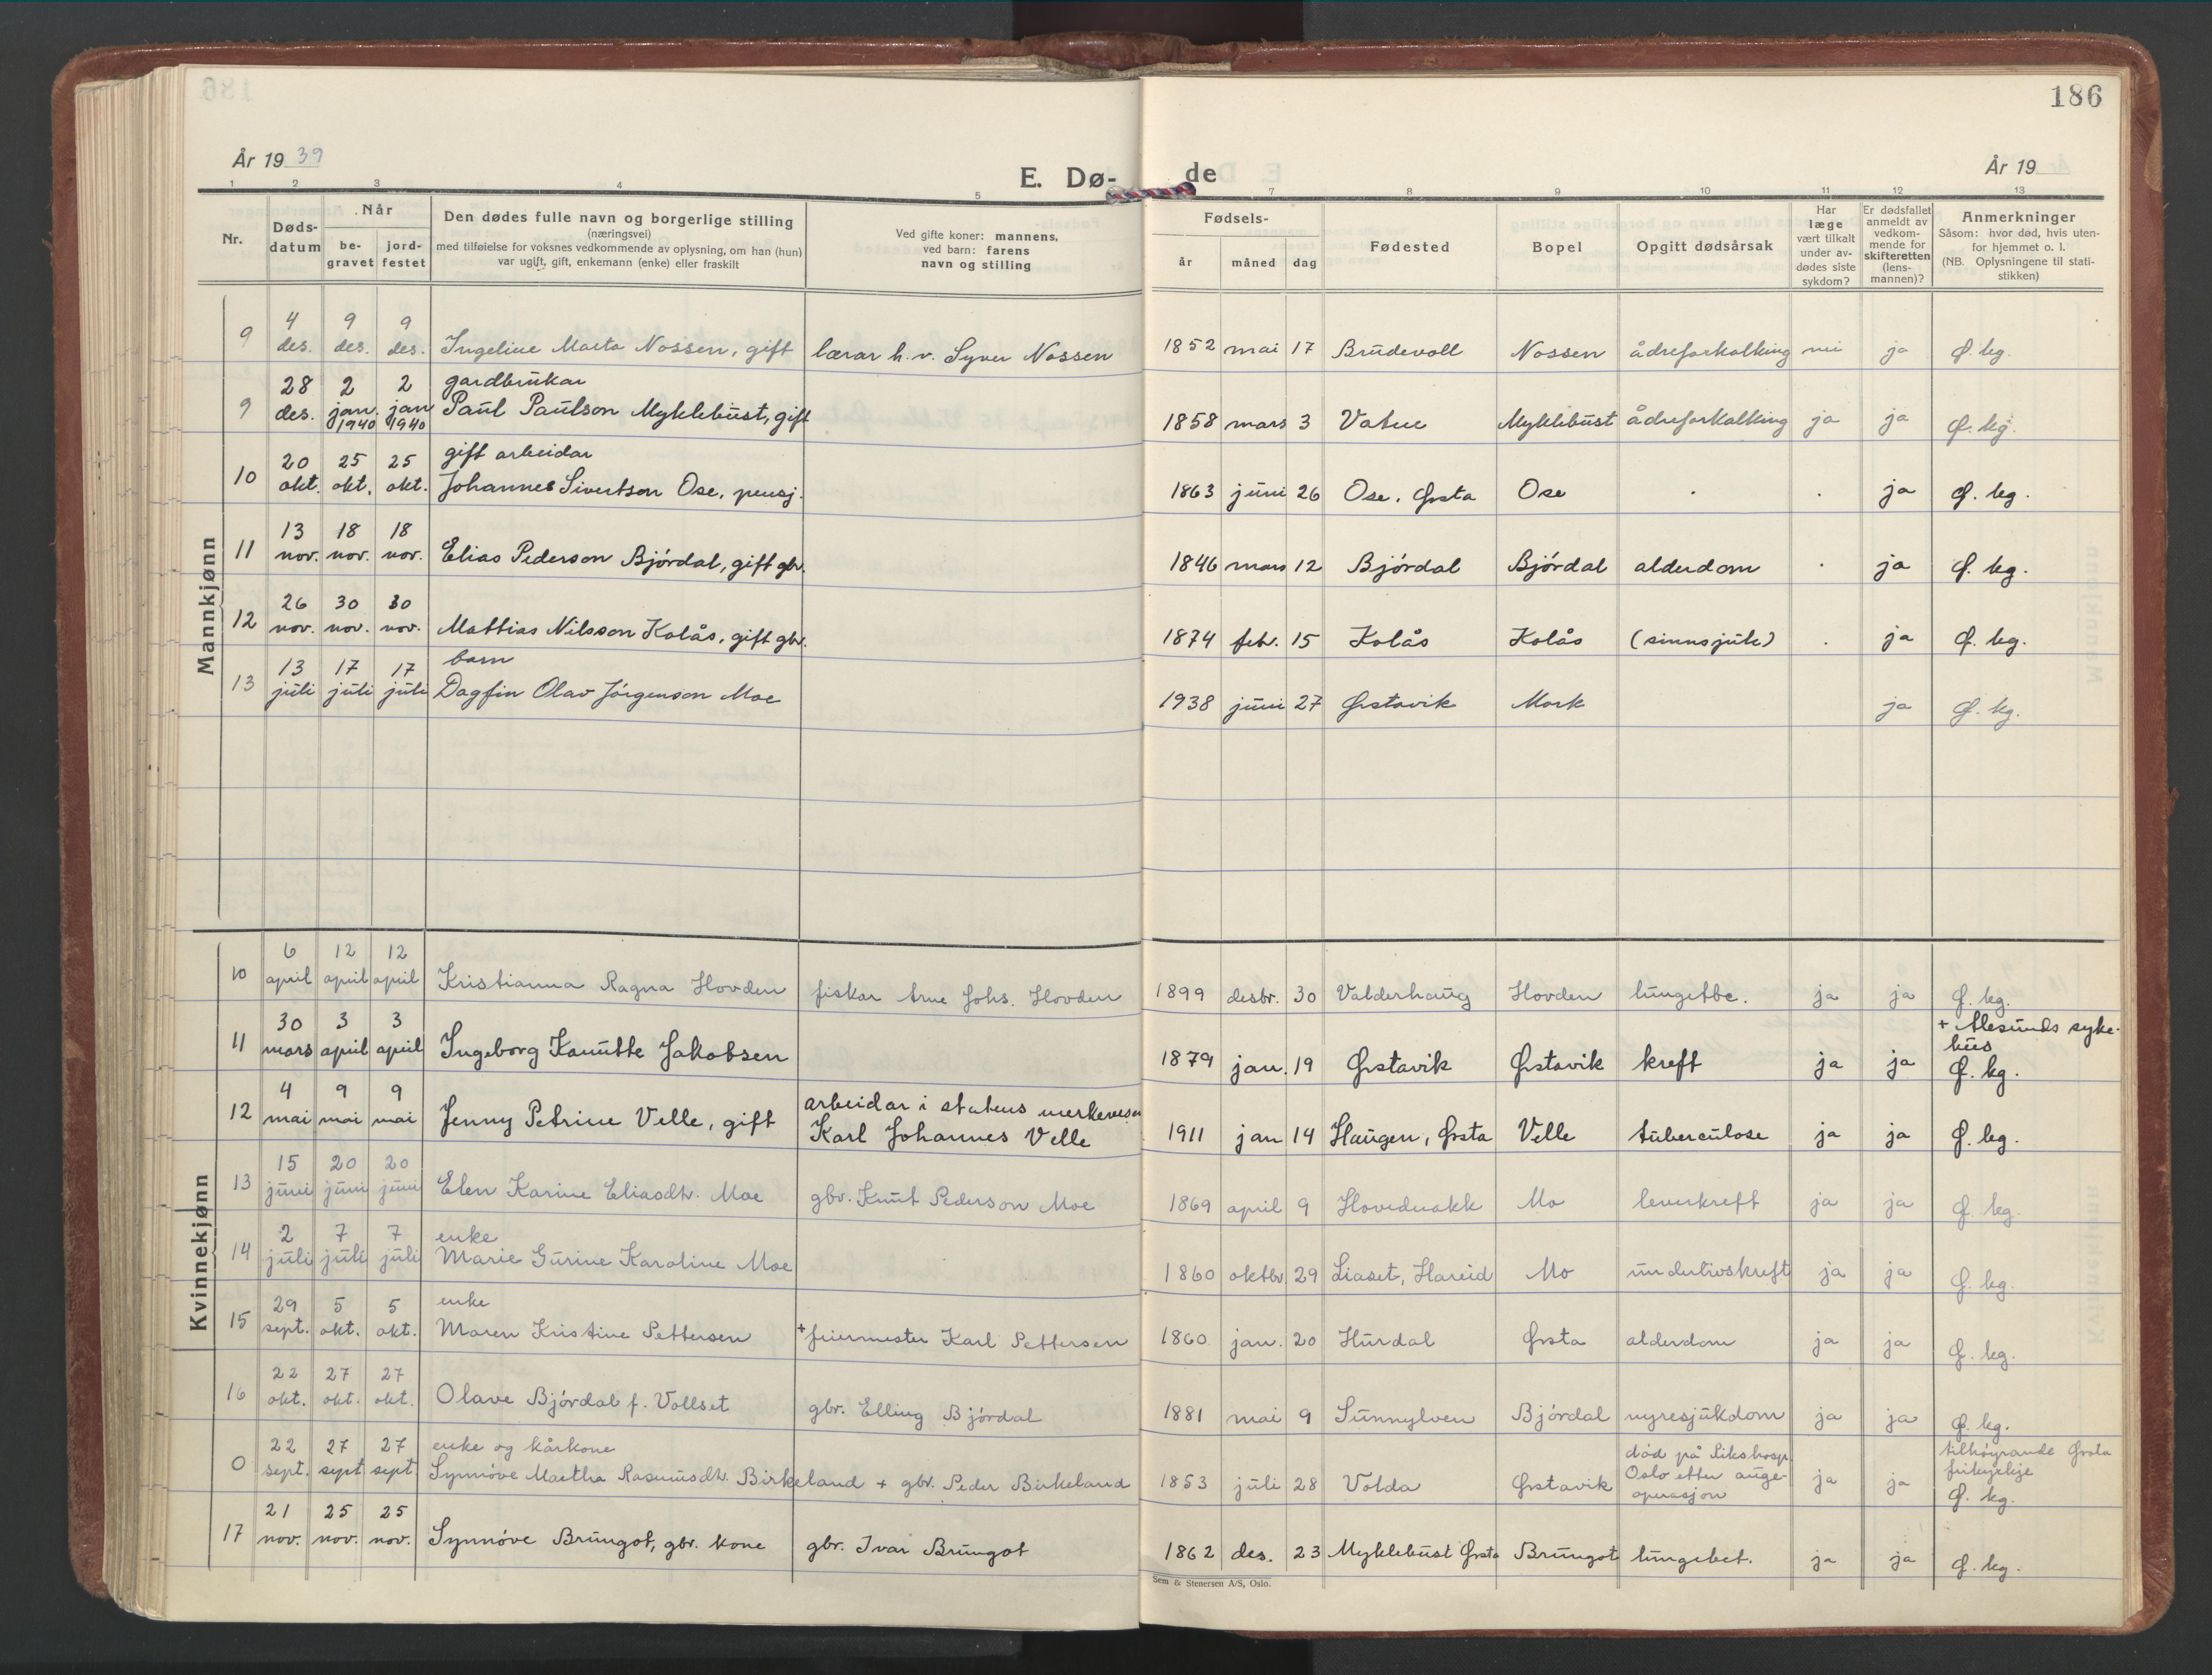 186
År 19 39
E. Dø-
de
År 19
1 2 3 4 5 7 8 9 10 11 12 13
Nr.
Døds-
datum
Når
be-
gravet
jord-
festet
Den dødes fulle navn og borgerlige stilling
(næringsvei)
med tilføielse for voksnes vedkommende av oplysning, om han (hun)
var ugift, gift, enkemann (enke) eller fraskilt
Ved gifte koner: mannens,
ved barn: farens
navn og stilling
Fødsels-
år måned dag
Fødested
Bopel
Opgitt dødsårsak
Har
læge
vært tilkalt
under av-
dødes siste
sykdom?
Er dødsfallet
anmeldt av
vedkom-
mende for
skifteretten
(lens-
mannen)?
Anmerkninger
Såsom: hvor død, hvis uten-
for hjemmet o. l.
(NB. Oplysningene til stati-
stikken)
Mannkjønn
4 9 9
9 des. des. des. Ingeline Marta Nossen, gift lærar h. v. Syver Nossen 1852 mai 17 Brudevoll Nossen ådreforkalking nei ja Ø. kg.
28 2 2 gardbrukar
9 des. jan. jan Paul Paulson Myklebust, gift 1858 mars 3 Vatne Myklebust ådreforkalking ja ja Ø. kg.
1940 1940
20 25 25 gift arbeidar
10 okt. okt. okt. Johannes Sivertson Ose, pensj. 1863 juni 26 Ose, Ørsta Ose . . ja Ø. kg.
13 18 18
11 nov. nov. nov. Elias Pederson Bjórdal, gift gbr. 1846 mars 12 Bjórdal Bjórdal alderdom . ja Ø. kg.
26 30 30
12 nov. nov. nov. Mattias Nilsson Kolås, gift gbr. 1874 feb. 15 Kolås Kolås (sinnsjuk) . ja Ø. kg.
13 17 17 barn
13 juli juli juli Dagfin Olav Jórgenson Moe 1938 juni 27 Ørstavik Mork ja Ø. kg.
Kvinnekjønn
6 12 12
10 april april april Kristianna Ragna Hovden fiskar Arne Johs. Hovden 1899 desbr. 30 Valderhaug Hovden lungetbc. ja ja Ø. kg.
30 3 3 + Ålesunds syke-
hus
11 mars april april Ingeborg Kanutte Jakobsen 1879 jan. 19 Ørstavik Ørstavik kreft ja ja Ø. kg.
4 9 9 arbeidar i statens merkevesen
12 mai mai mai Jenny Petrine Velle, gift Karl Johannes Velle 1911 jan 14 Haugen, Ørsta Velle tuberculose ja ja Ø. kg.
15 20 20
13 juni juni juni Elen Karine Eliasdtr. Moe gbr. Knut Pederson Moe 1869 april 9 Hovdenakk Mo leverkreft ja ja Ø. kg.
2 7 7 enke
14 juli juli juli Marie Gurine Karoline Moe 1860 oktbr. 29 Liaset, Hareid Mo underlivskreft ja ja Ø. kg.
29 5 5 enke
15 sept. okt. okt. Maren Kristine Pettersen + feiermester Karl Pettersen 1860 jan. 20 Hurdal Ørsta alderdom ja ja Ø. kg.
22 27 27
16 okt. okt. okt. Olave Bjórdal f. Vollset gbr. Elling Bjórdal 1881 mai 9 Sunnylven Bjórdal nyresjukdom ja ja Ø. kg.
22 27 27 enke og kårkone død på Rikshosp. tilhøyrande Ørsta
0 sept. sept sept. Synnóve Martha Rasmusdtr. Birkeland + gbr. Peder Birkeland 1853 juli 28 Volda Ørstavik Oslo etter auge- ja ja frikyrkje
operasjon Ø. kg.
21 25 25
17 nov. nov. nov. Synnóve Brungot, gbr. kone gbr. Ivar Brungot 1862 des. 23 Myklebust Ørsta Brungot lungebet. ja ja Ø. kg.
Sem & Stenersen A/S, Oslo.